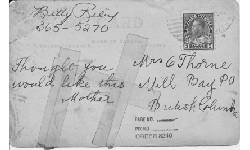 Betty Reling
365-5270
Thought you
would like this
Mother
Mrs C Thorne
Mill Bay PO
British Columbia
ORDER 8210